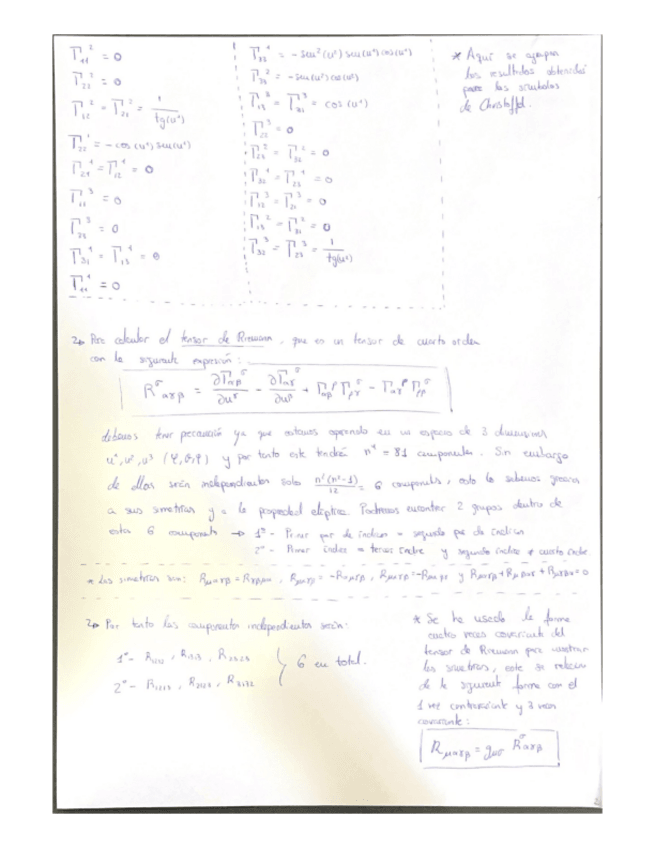 Γ₁₁² = 0
Γ₂₂² = 0
Γ₁₂² = Γ₂₁² = 1/tg(u¹)
Γ₂₂¹ = -cos(u¹) sen(u¹)
Γ₂₁¹ = Γ₁₂¹ = 0
Γ₁₁³ = 0
Γ₂₂³ = 0
Γ₃₁¹ = Γ₁₃¹ = 0
Γ₁₁¹ = 0
Γ₃₃¹ = -sen²(u²) sen(u¹) cos(u¹)
Γ₃₃² = -sen(u²) cos(u²)
Γ₁₃³ = Γ₃₁³ = cos(u¹)
Γ₃₃³ = 0
Γ₂₃² = Γ₃₂² = 0
Γ₃₂¹ = Γ₂₃¹ = 0
Γ₁₂³ = Γ₂₁³ = 0
Γ₁₃² = Γ₃₁² = 0
Γ₃₂³ = Γ₂₃³ = 1/tg(u²)
* Aquí se agrupan
los resultados obtenidos
para los símbolos
de Christoffel.
2. Para calcular el tensor de Riemann, que es un tensor de cuarto orden
con la siguiente expresión:
debemos tener precaución ya que estamos operando en un espacio de 3 dimensiones
u¹, u², u³ y por tanto este tendrá n⁴ = 81 componentes. Sin embargo
de ellas serán independientes solo n²(n²-1)/12 = 6 componentes, esto lo sabemos gracias
a sus simetrías y a la propiedad cíclica. Podremos encontrar 2 grupos dentro de
estas 6 componentes → 1º- Primer par de índices = segundo par de índices
2º- Primer índice = tercer índice y segundo índice ≠ cuarto índice
* Las simetrías son:
2. Por tanto las componentes independientes serán:
1º- R₁₂₁₂, R₁₃₁₃, R₂₃₂₃
2º- R₁₂₁₃, R₂₁₂₃, R₃₁₃₂
6 en total.
* Se ha usado la forma
cuatro veces covariante del
tensor de Riemann para mostrar
las simetrías, este se relaciona
de la siguiente forma con el
1 vez contravariante y 3 veces
covariante: